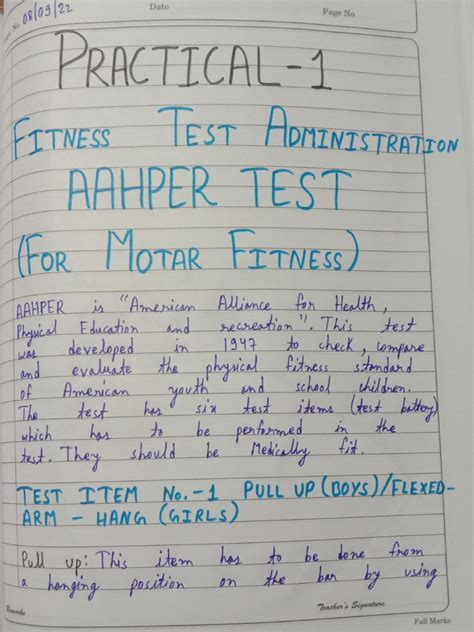 No. 08/09/22 Date Page No.
PRACTICAL-1
FITNESS TEST ADMINISTRATION
AAHPER TEST
(FOR MOTAR FITNESS)
AAHPER is "American Alliance for Health,
Physical Education and recreation". This test
was developed in 1947 to check, compare
and evaluate the physical fitness standard
of American youth and school children.
The test has six test items (test battery)
which has to be performed in the
test. They should be Medically fit.
TEST ITEM No.-1 PULL UP (BOYS)/FLEXED-
ARM - HANG (GIRLS)
Pull up: This item has to be done from
a hanging position on the bar by using
Remarks Teacher's Signature
Full Marks